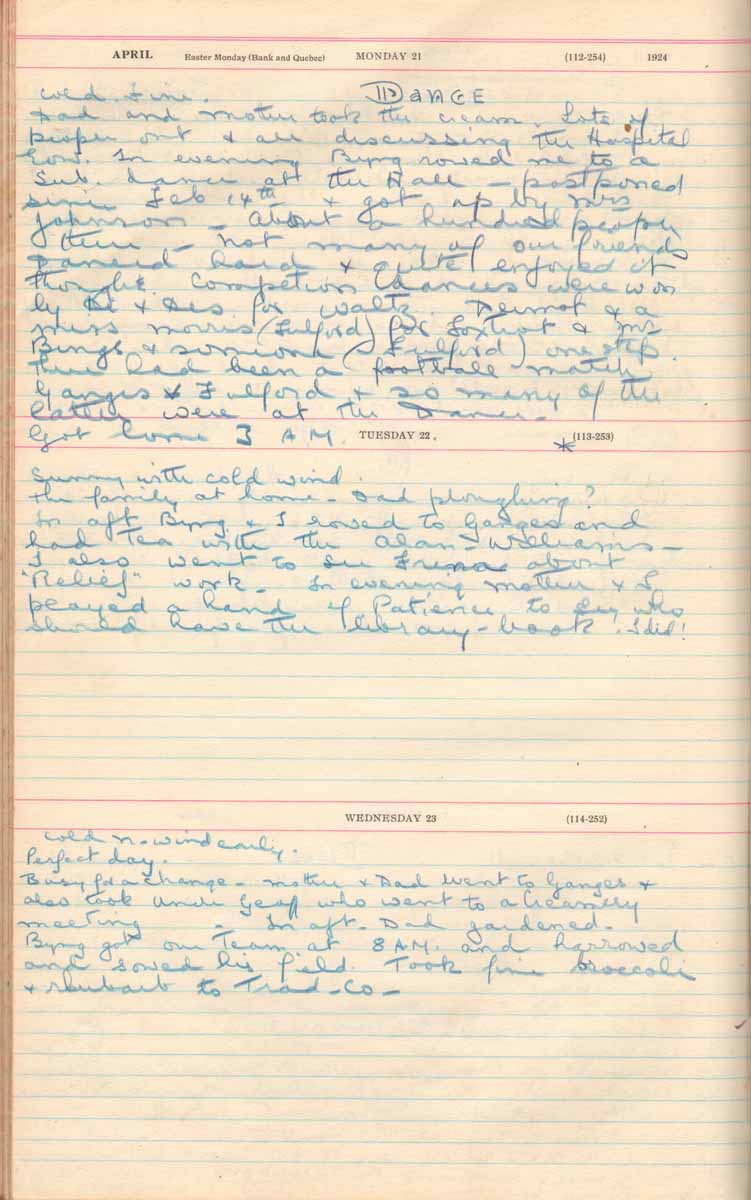 APRIL Easter Monday (Bank and Quebec) MONDAY 21 (112-254) 1924
Cold. Fine. DANCE
Dad and mother took the cream. Lots of
people out & all discussing the Hospital
Gov. In evening Byng rowed me to a
Sub. dance at the Hall - postponed
since Feb 14th & got up by Mrs
Johnson - About a hundred people
there - not many of our friends
Danced hard & quite enjoyed it
though. Competion Dances were won
by Di & Des for waltz. Dermot & a
Miss Morris (Fulford) for Foxtrot & Mr
Bings & someone (Fulford) one step.
There had been a football match
Ganges & Fulford & so many of the
latter were at the Dance -
Got home 3 A M. TUESDAY 22. * (113-253)
Sunny with cold wind.
The family at home - Dad ploughing?
In aft Byng & I rowed to Ganges and
had Tea with the Alan-Williams -
I also went to see about
"Relief" work - In evening mother & I
played a hand of Patience to see who
should have the library-book. I did!
WEDNESDAY 23 (114-252)
Cold N-wind early.
Perfect day.
Busy for a change - mother & Dad went to Ganges &
also took Uncle Geoff who went to a Creamery
meeting - In aft. Dad gardened -
Byng got our Team at 8 A.M. and harrowed
and sowed his field. Took fine broccoli
& rhubarb to Trad-Co -